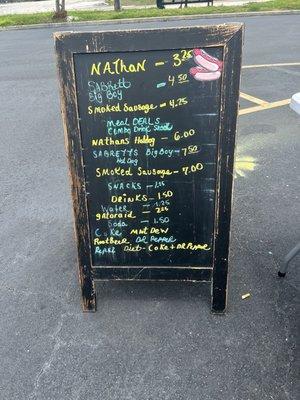 NATHAN - 3.25
SABRETT
Big Boy - 4.50
Smoked SAUSAGE - 4.25
MEAL DEALS
Combo Drink
NATHANS Hotdog - 6.00
SABRETTS Big Boy - 7.50
Hot Dog
Smoked SAUSAGE - 7.00
SNACKS -
DRINKS - 1.50
Water - 1.25
gatoraid -
Soda - 1.50
Coke MNT DEW
Rootbeer DR PEPPER
Diet - Coke + DR PEPPER